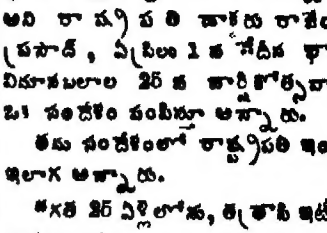 అని రాష్ట్రపతి డాక్టరు రాజేం
ప్రసాద్, ఏప్రిలు 1 వ తేదీన భా
విమానబలాల 25 వ వార్షికోత్సవా
ఒక సందేశం పంపిస్తూ అన్నారు.
తమ సందేశంలో రాష్ట్రపతి ఇం
ఇలాగ అన్నారు.
గత 25 ఏళ్లలోను,